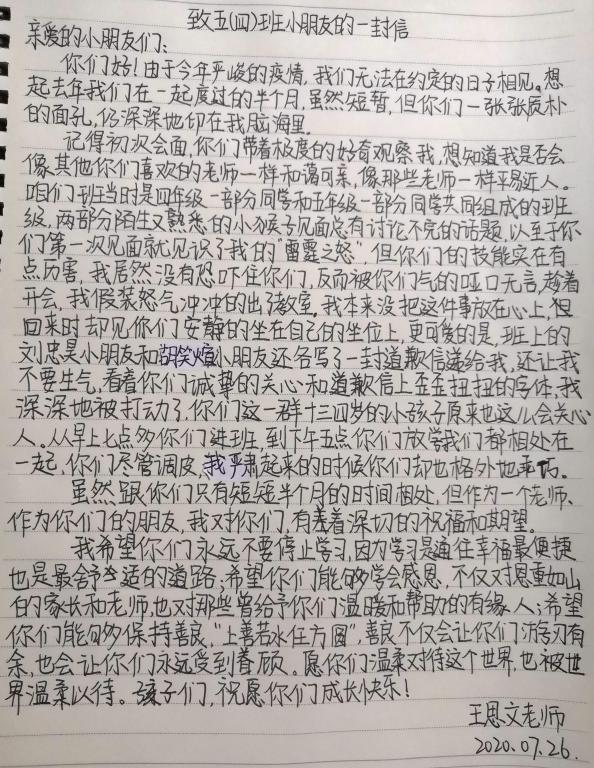 致五(四)班小朋友的一封信
亲爱的小朋友们:
你们好!由于今年严峻的疫情,我们无法在约定的日子相见。想
起去年我们在一起度过的半个月,虽然短暂,但你们一张张质朴
的面孔,仍深深地印在我脑海里。
记得初次会面,你们带着极度的好奇观察我,想知道我是否会
像其他你们喜欢的老师一样和蔼可亲,像那些老师一样平易近人。
咱们班当时是四年级一部分同学和五年级一部分同学共同组成的班
级,两部分陌生又熟悉的小猴子见面总有讨论不完的话题,以至于你
们第一次见面就见识了我的“雷霆之怒”,但你们的技能实在有
点厉害,我居然没有恐吓住你们,反而被你们气的哑口无言,趁着
开会,我假装怒气冲冲的出了教室。我本来没把这件事放在心上,但
回来时却见你们安静的坐在自己的坐位上,更可爱的是,班上的
刘忠昊小朋友和胡笑煊小朋友还各写了一封道歉信递给我,还让我
不要生气,看着你们诚挚的关心和道歉信上歪歪扭扭的字体,我
深深地被打动了,你们这一群十三四岁的小孩子原来也这么会关心
人。从早上七点多你们进班,到下午五点你们放学我们都相处在
一起,你们尽管调皮,我严肃起来的时候你们却也格外地乖巧。
虽然跟你们只有短短半个月的时间相处,但作为一个老师、
作为你们的朋友,我对你们,有着深切的祝福和期望。
我希望你们永远不要停止学习,因为学习是通往幸福最便捷
也是最舒适的道路;希望你们能够学会感恩,不仅对恩重如山
的家长和老师,也对那些曾给予你们温暖和帮助的有缘人;希望
你们能够保持善良,“上善若水任方圆”,善良不仅会让你们游刃有
余,也会让你们永远受到眷顾。愿你们温柔对待这个世界,也被世
界温柔以待。孩子们,祝愿你们成长快乐!
王思文老师
2020.07.26.